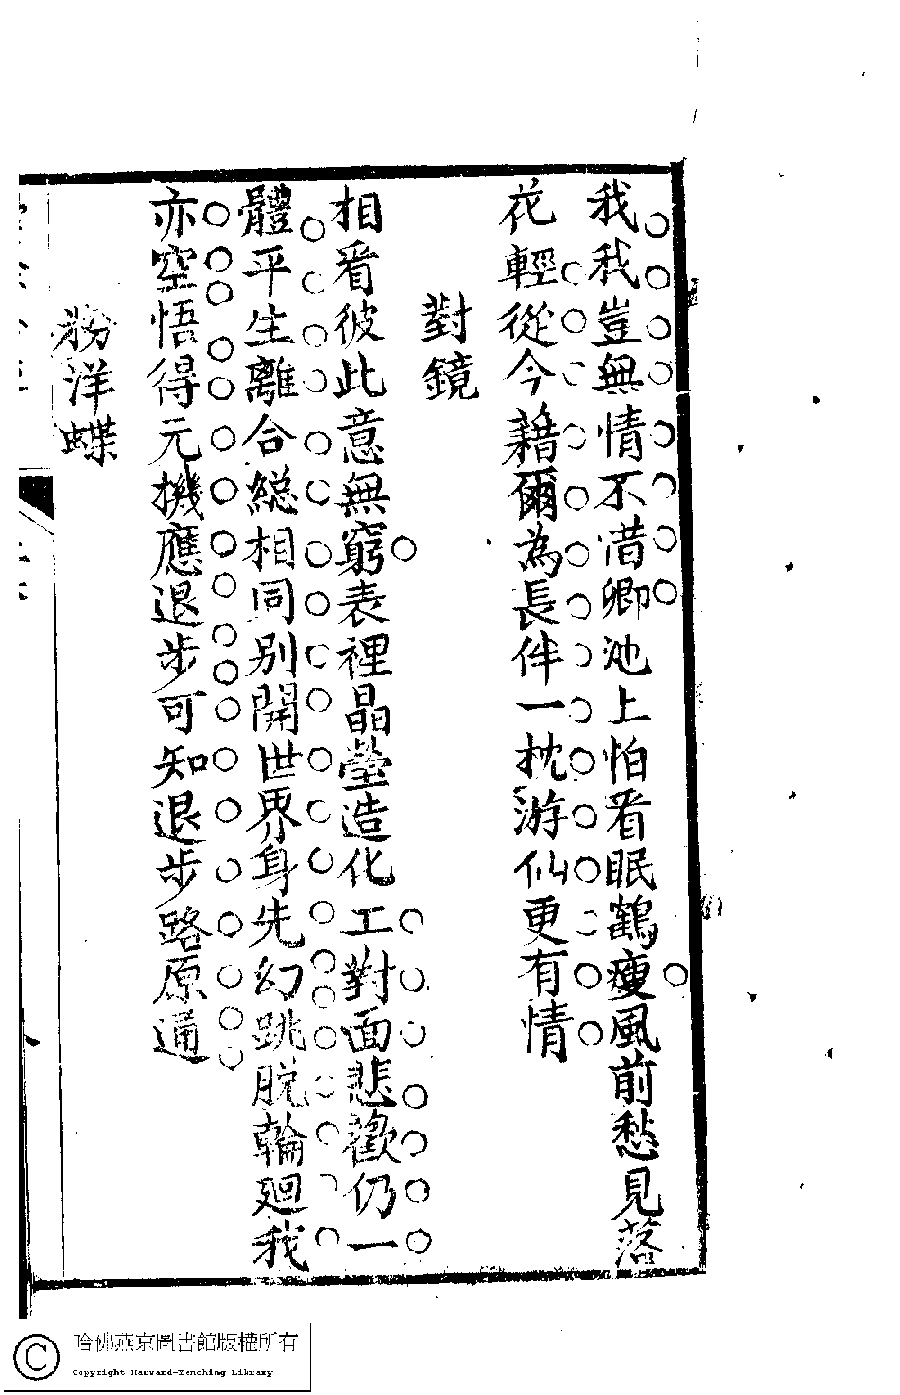 我我豈無情不惜卿池上怕看眠鶴瘦風前愁見落
花輕從今藉爾為長伴一枕游仙更有情
對鏡
相看彼此意無窮表裡晶瑩造化工對面悲歡仍一
體平生離合總相同別開世界身先幻跳脫輪廻我
亦空悟得元機應退步可知退步路原通
洋蝶
哈佛燕京圖書館版權所有
Copyright Harvard-Yenching Library